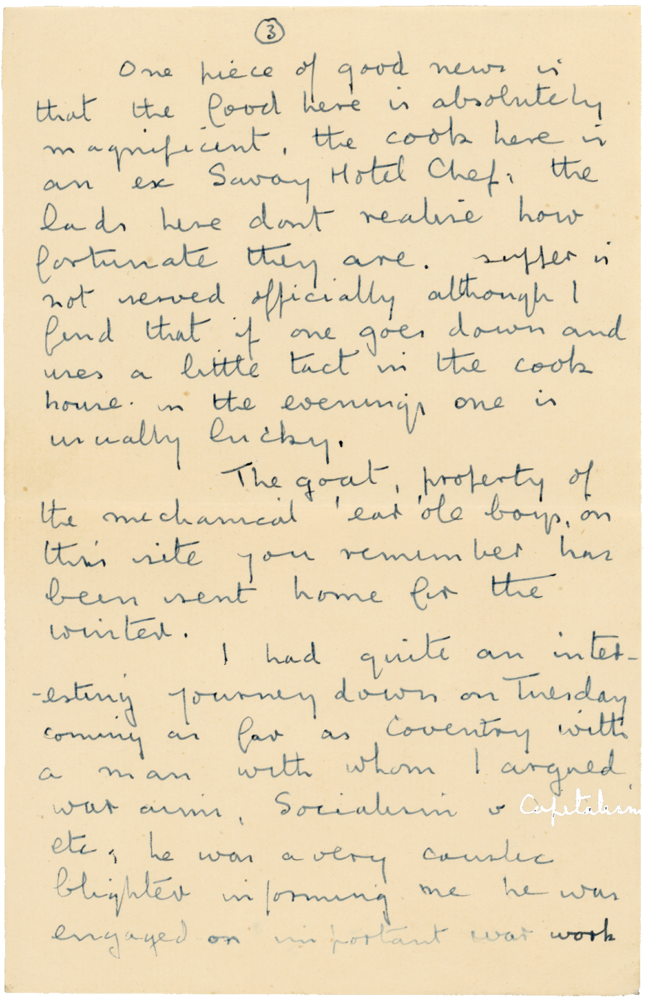 3
One piece of good news is
that the food here is absolutely
magnificent, the cook here is
an ex Savoy Hotel Chef, the
lads here dont realise how
fortunate they are. supper is
not served officially although I
find that if one goes down and
uses a little tact in the cook
house in the evenings one is
usually lucky.
The goat, property of
the mechanical 'ear 'ole boys, on
this site you remember has
been sent home for the
winter.
I had quite an inter-
-esting journey down on Tuesday
coming as far as Coventry with
a man with whom I argued
war aims, Socialism v Capitalism
etc, he was a very caustic
blighter informing me he was
engaged on important war work